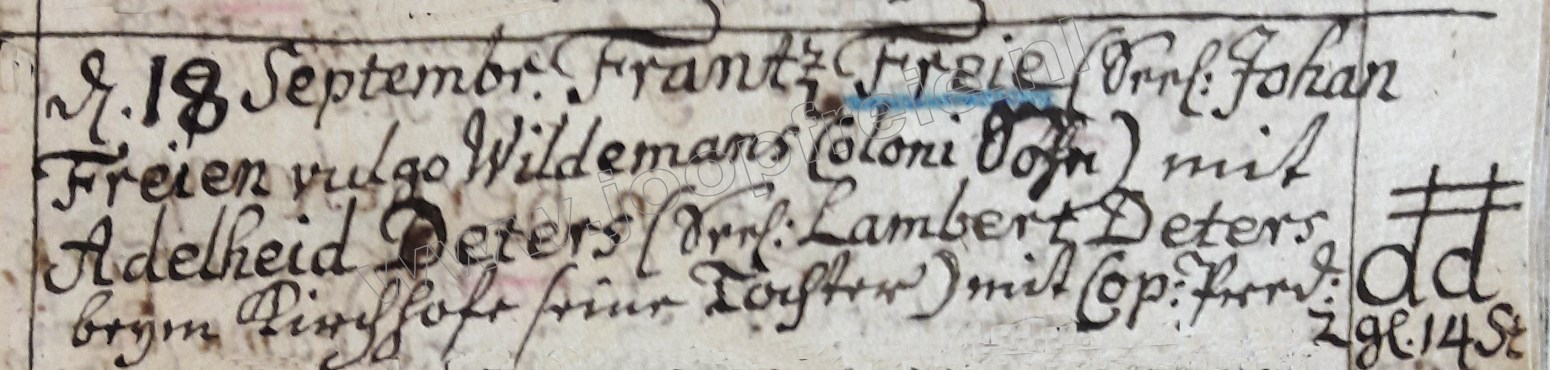 d. 18 Septembr. Frantz Freie (Seel: Johan
Freien vulgo Wildemans Coloni Sohn) mit
Adelheid Deters (Seel: Lambert Deters
beym Kirchhofe seine Tochter) mit Cop: Pred:
dd
2 gl. 14 St
www.joopfreie.nl